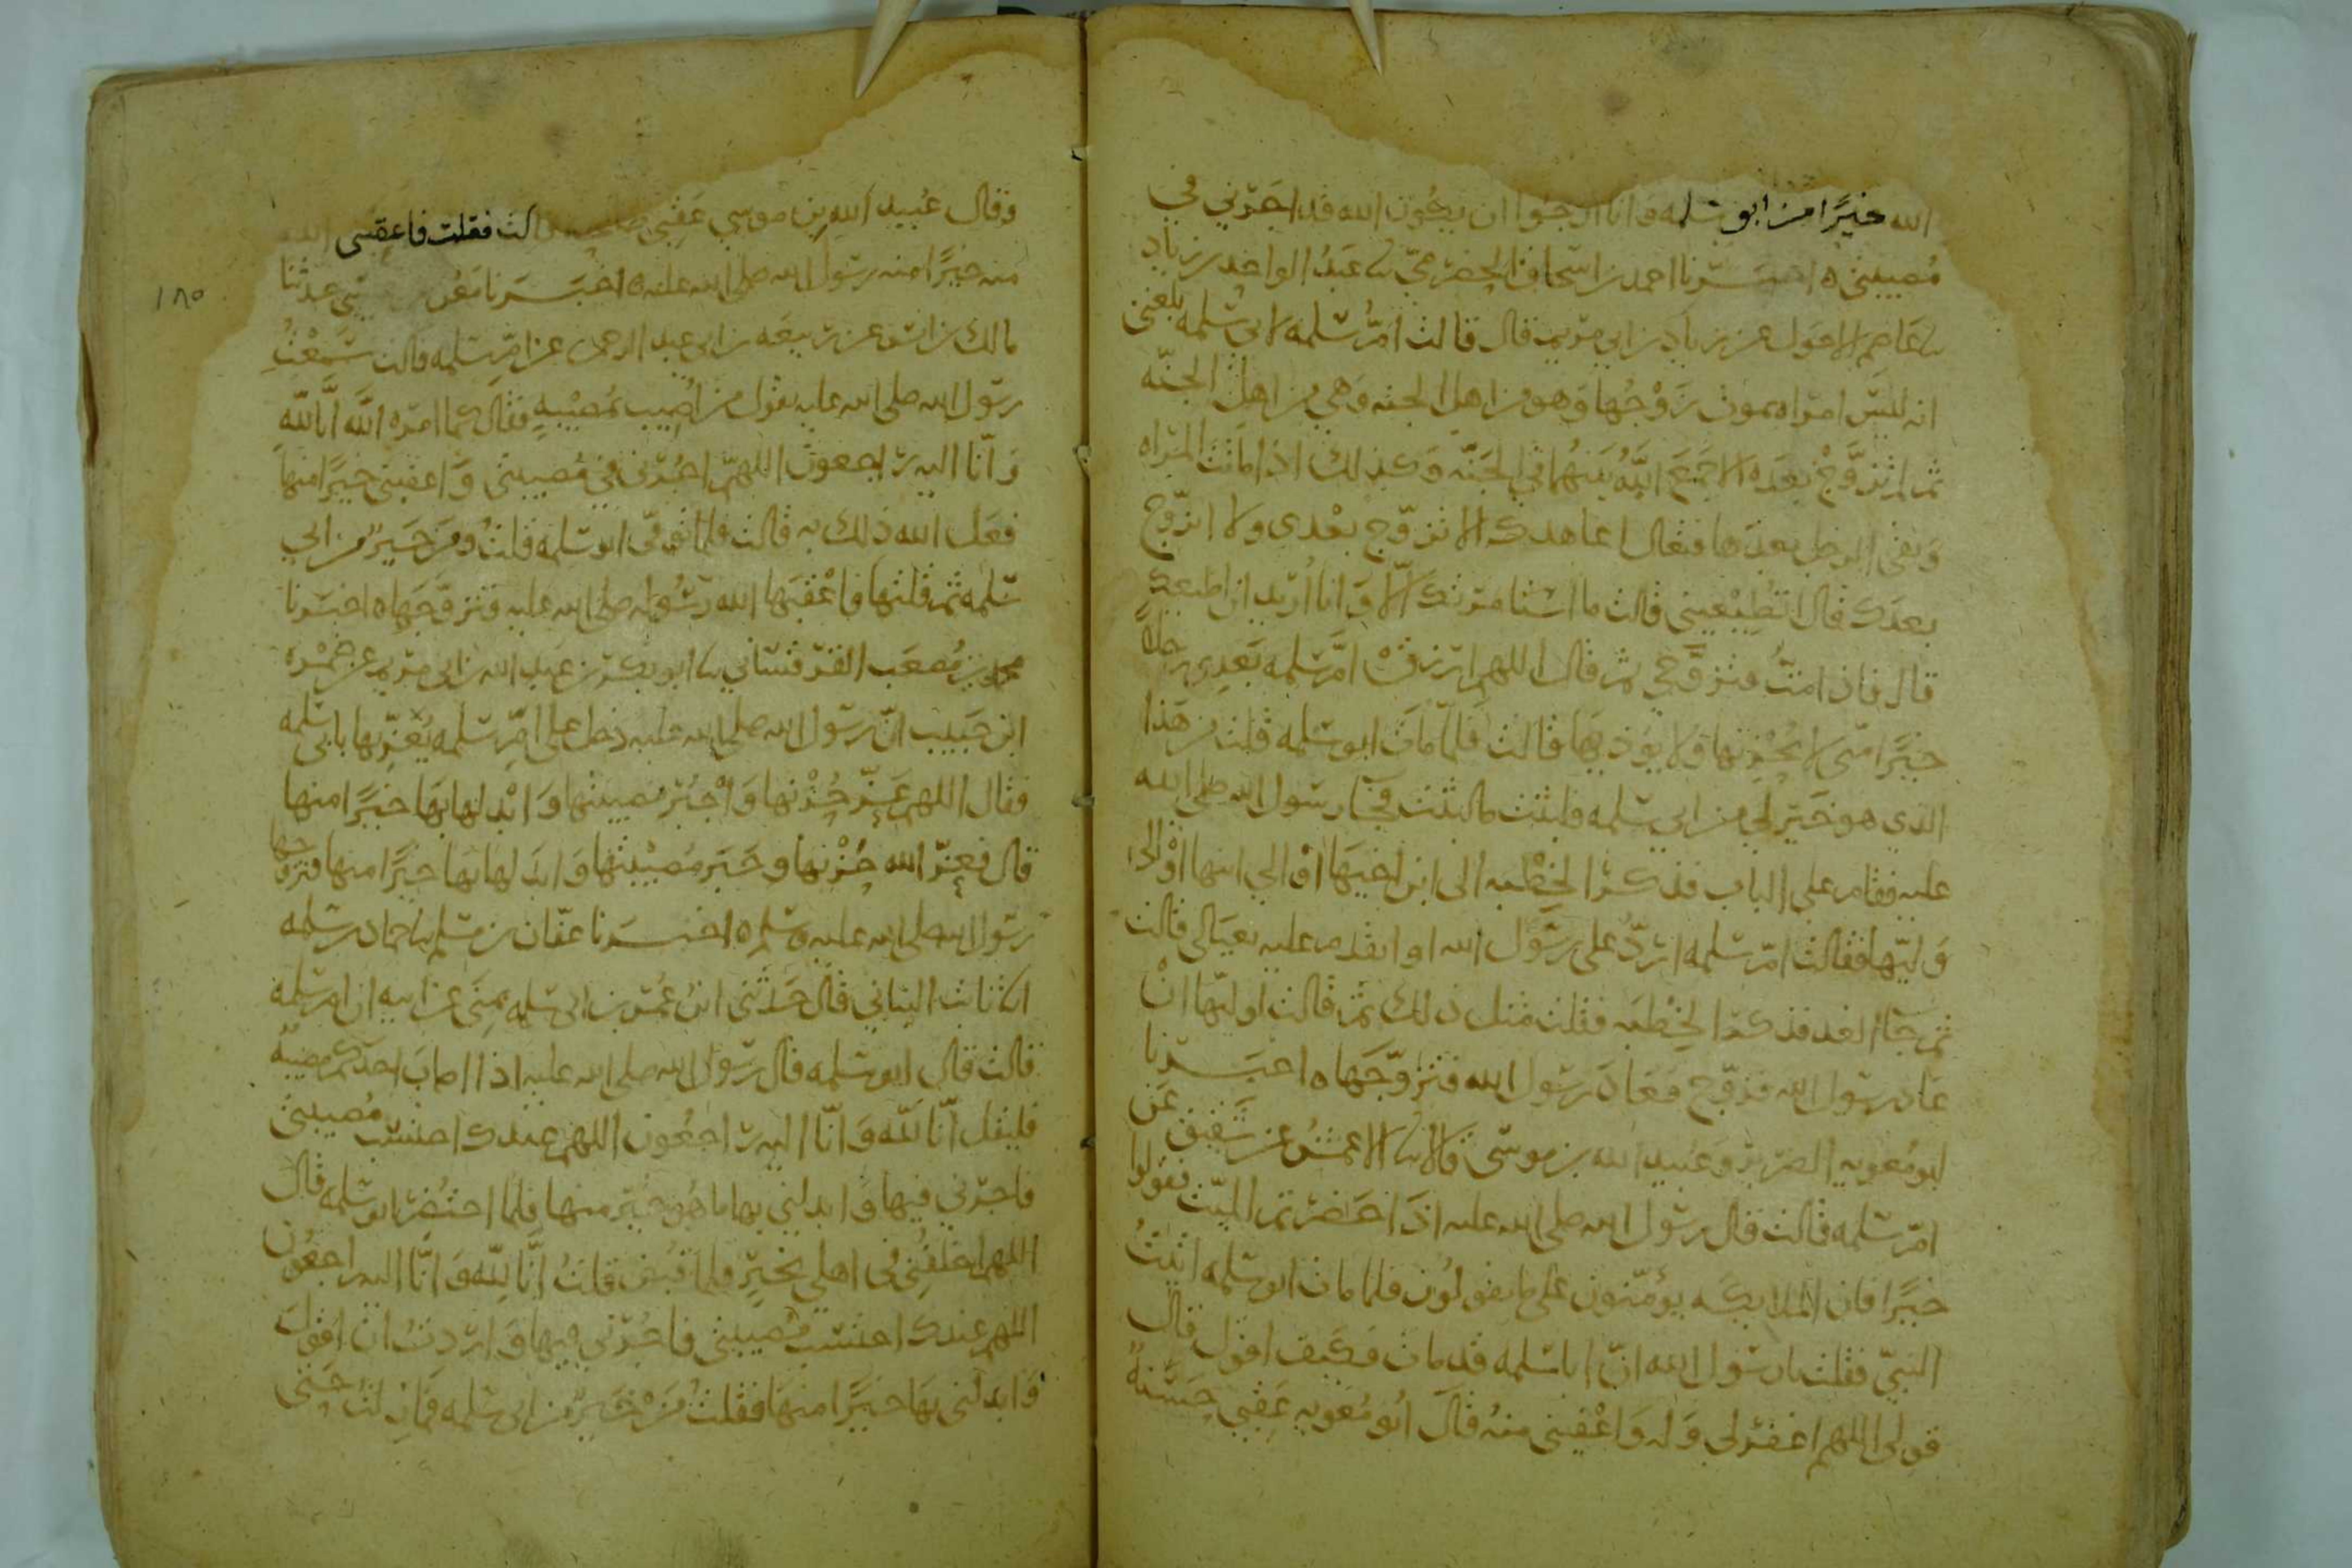 الله خيرًا من ابو سلمه وانا ارجوا ان يكون الله قد اجرني في
مصيبتي ه اخبـــرنا احمد بن اسحاق الحضرمي نا عبد الواحد بن زياد
نا عاصم الاحول عن زياد بن ابي مريم قال قالت ام سلمه لابي سلمه بلغني
انه ليس امراه يموت زوجها وهو من اهل الجنه وهي من اهل الجنه
ثم لم تزوج بعده الا جمع الله بينهما في الجنه وكذلك اذا ماتت المراه
وبقى الرجل بعدها فتعال اعاهدك الا تزوج بعدي ولا اتزوج
بعدك قال اتطيعيني قالت ما استامرتك الا وانا اريد ان اطيعك
قال فاذا متّ فتزوجي ثم قال اللهم ارزق ام سلمه بعدي رجلا
خيرًا مني لا يحزنها ولا يوذيها قالت فلما مات ابو سلمه قلت من هذا
الذي هو خير لي من ابي سلمه فلبثت مالبثت فجا رسول الله صلى الله
عليه فقام على الباب فذكر الخطبه الى ابن اخيها او الي ابنها او الى
وليّها فقالت ام سلمه ارد على رسول الله او اتقدم عليه بعيالي قالت
ثم جا الغد فذكر الخطبه فقلت مثل ذلك ثم قالت لوليّها ان
عاد رسول الله فزوج فعاد رسول الله فتزوجها ه اخبـــرنا
ابو معويه الضرير وعبيد الله بن موسى قالا نا الاعمش عن شقيق عن
ام سلمه قالت قال رسول الله صلى الله عليه اذا حضرتم الميت فقولوا
خيرًا فان الملايكه يومّنون على ما يقولون فلما مات ابو سلمه اتيت
النبي فقلت يارسول الله ان اباسلمه قد مات فكيف اقول قال
قولي اللهم اغفر لي وله واعقبني منه قال ابو معويه عقبى حسنة
وقال عبيد الله بن موسي عقبى قالت فقلت فاعقبني الله
منه خيرًا منه رسول الله صلى الله عليه ه اخبـــرنا معن حدثنا
مالك بن انس عن ربيعه بن ابي عبد الرحمن عن ام سلمه قالت سمعت
رسول الله صلى الله عليه يقول من اصيب بمصيبه فقال كما امره الله انا لله
وانا اليه راجعون اللهم اجرني في مصيبتي واعقبني خيرًا منها
فعل الله ذلك به قالت فلما توفّى ابو سلمه قلت ومن خير من ابي
سلمه ثم قلتها فاعقبها الله رسوله صلى الله عليه فتزوجها ه اخبرنا
محمد بن مصعب القرقساني نا ابو بكر بن عبد الله بن ابي مريم عن ضمره
ابن حبيب ان رسول الله صلى الله عليه دخل على ام سلمه يعزيها بابي سلمه
فقال اللهم عزّ حزنها واجبر مصيبتها وابدلها بها خيرًا منها
قال فعزّ الله حزنها وجبر مصيبتها وابدلها بها خيرًا منها فتزوجها
رسول الله صلى الله عليه وسلم ه اخبـــرنا عفان بن مسلم نا حماد بن سلمه
انا ثابت البناني قال حدثني ابن عمر بن ابي سلمه بمنى عن ابيه ان ام سلمه
قالت قال ابو سلمه قال رسول الله صلى الله عليه اذا اصاب احدكم مصيبه
فليقل انا لله وانا اليه راجعون اللهم عندك احتسب مصيبتي
فاجرني فيها وابدلني بها ما هو خير منها فلما احتضر ابو سلمه قال
اللهم اخلفني في اهلي بخير فلما قبض قلت انا لله وانا اليه راجعون
اللهم عندك احتسب مصيبتي فاجرني فيها واردت ان اقول
وابدلني بها خيرًا منها فقلت من خير من ابي سلمه فمازلت حتى
١٨٥